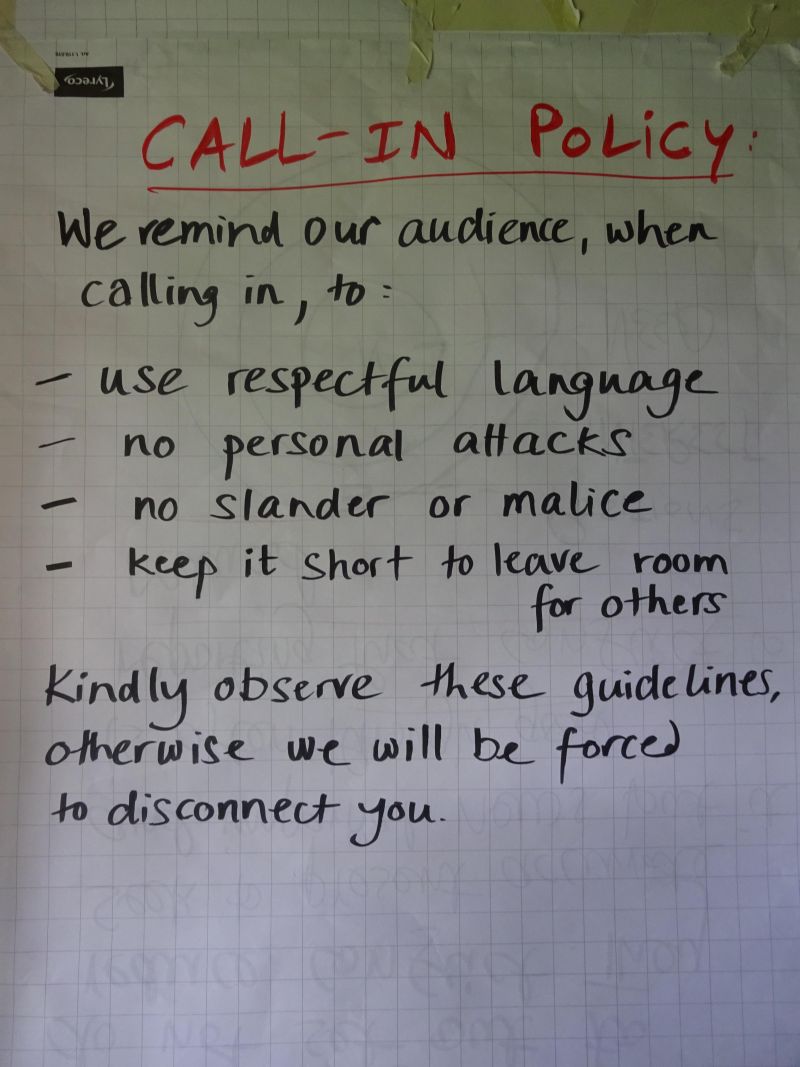 Lyreco
CALL-IN POLiCY:
We remind our audience, when
calling in, to:
- use respectful language
- no personal attacks
- no slander or malice
- keep it short to leave room
for others
Kindly observe these guidelines,
otherwise we will be forced
to disconnect you.